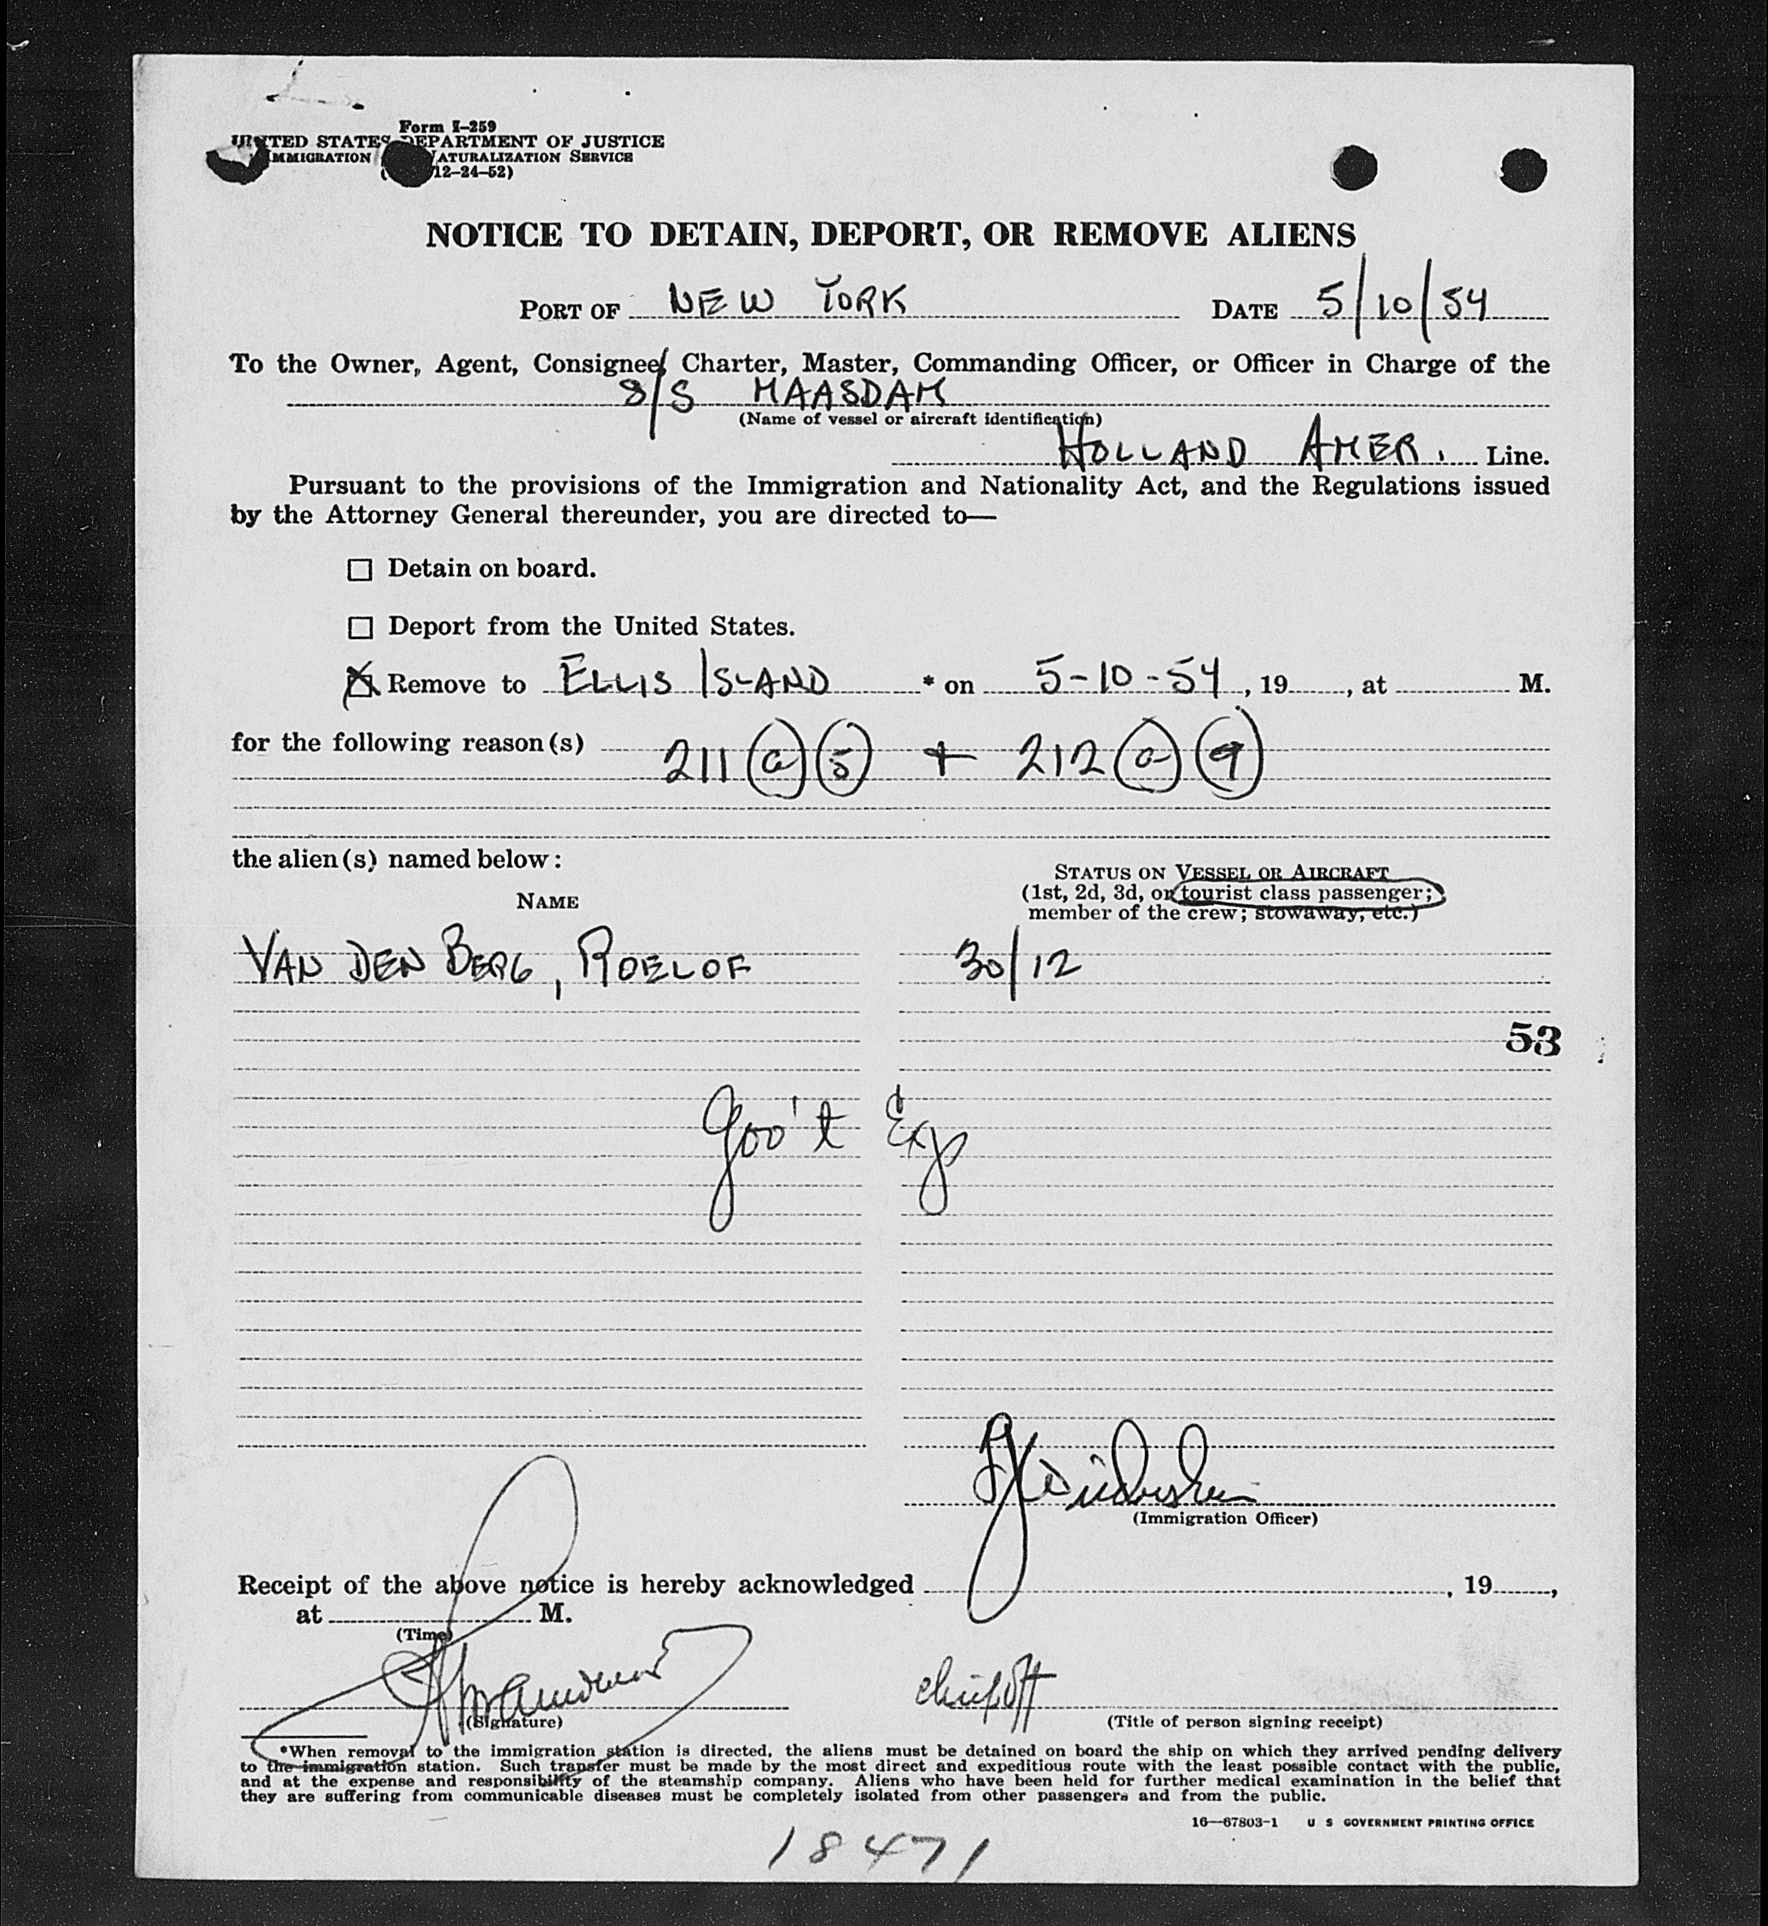 Form I-259
UNITED STATES DEPARTMENT OF JUSTICE
IMMIGRATION NATURALIZATION SERVICE
( 12-24-52)
NOTICE TO DETAIN, DEPORT, OR REMOVE ALIENS
PORT OF NEW YORK DATE 5/10/54
To the Owner, Agent, Consignee, Charter, Master, Commanding Officer, or Officer in Charge of the
S/S MAASDAM
(Name of vessel or aircraft identification)
HOLLAND AMER. Line.
Pursuant to the provisions of the Immigration and Nationality Act, and the Regulations issued
by the Attorney General thereunder, you are directed to—
☐ Detain on board.
☐ Deport from the United States.
☒ Remove to ELLIS ISLAND * on 5-10-54, 19, at M.
for the following reason(s) 211 (a) (5) + 212 (a) (9)
the alien(s) named below:
STATUS ON VESSEL OR AIRCRAFT
NAME (1st, 2d, 3d, or tourist class passenger;
member of the crew; stowaway, etc.)
VAN DEN BERG, ROELOF 30/12
53
Gov't Exp
(Immigration Officer)
Receipt of the above notice is hereby acknowledged , 19 ,
at M.
(Time)
(Signature) (Title of person signing receipt)
*When removal to the immigration station is directed, the aliens must be detained on board the ship on which they arrived pending delivery
to the immigration station. Such transfer must be made by the most direct and expeditious route with the least possible contact with the public,
and at the expense and responsibility of the steamship company. Aliens who have been held for further medical examination in the belief that
they are suffering from communicable diseases must be completely isolated from other passengers and from the public.
16—67803-1 U S GOVERNMENT PRINTING OFFICE
18471